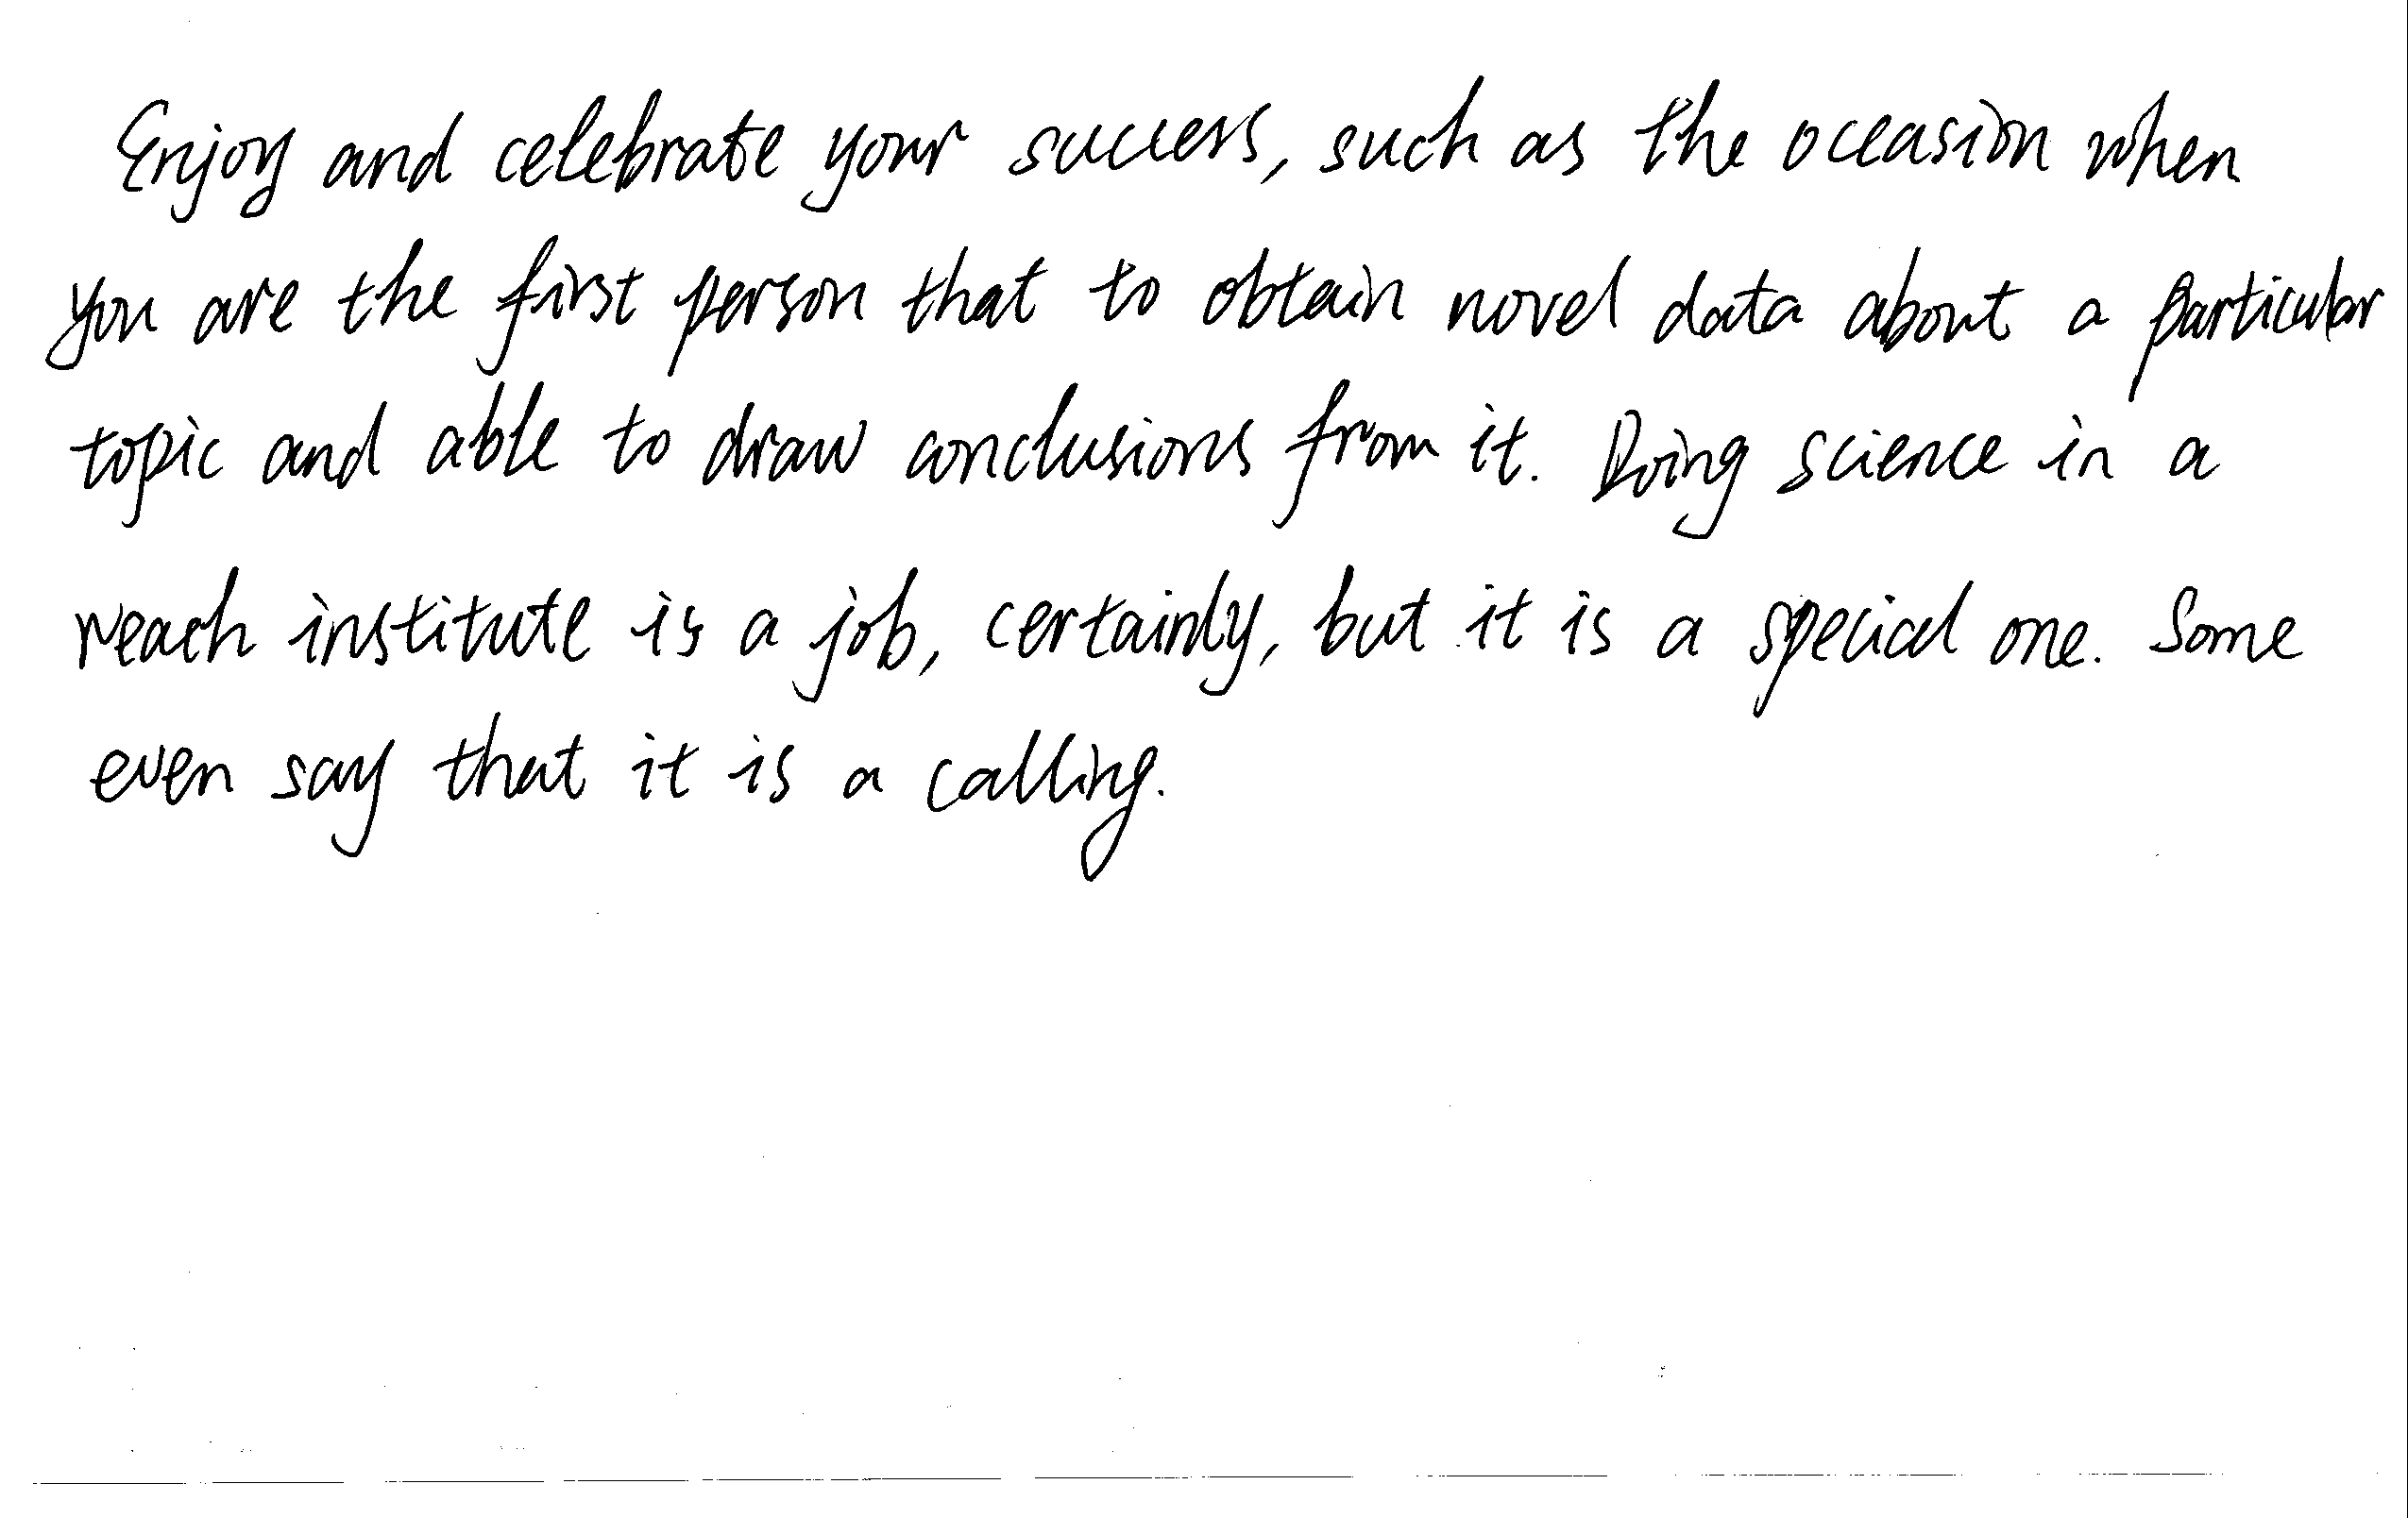 Enjoy and celebrate your success, such as the occasion when
you are the first person that to obtain novel data about a particular
topic and able to draw conclusions from it. Doing science in a
reach institute is a job, certainly, but it is a special one. Some
even say that it is a calling.